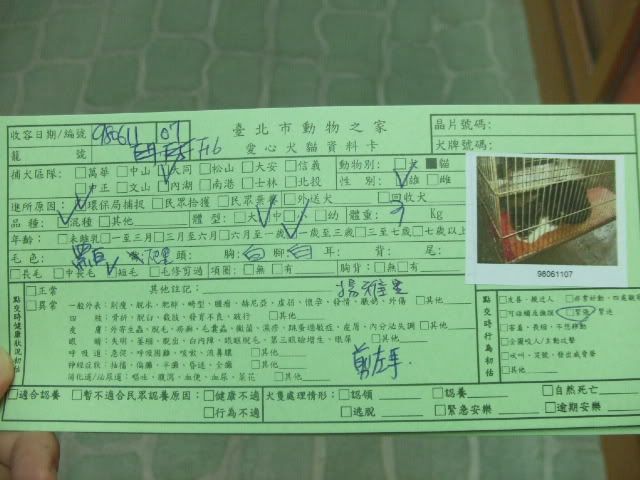 收容日期/編號 980611 07 臺北市動物之家 晶片號碼:
籠 號 愛心犬貓資料卡 犬牌號碼:
捕犬區隊: □萬華 □中山 □大同 □松山 □大安 □信義 動物別: □犬 ■貓
□中正 □文山 □內湖 □南港 □士林 □北投 性 別: □雄 □雌
進所原因: □環保局捕捉 □民眾拾獲 □民眾棄養 □外送犬 □回收犬
品 種: □混種 □其他 體 型: □大 □中 □小 □幼 體重: Kg
年齡: □未離乳 □一至三月 □三至六月 □六月至一歲 □一歲至三歲 □三至七歲 □七歲以上
毛 色: 頭: 胸: 白 腳: 白 耳: 背: 尾:
□長毛 □中長毛 □短毛 □毛修剪過 項圈: □無 □有 胸背: □無 □有
98061107
點交時健康狀況初估 □正常 其他註記:
□異常 一般外表: 削瘦、脫水、肥胖、畸型、腫瘤、赫尼亞、虛弱、懷孕、發情、臘奶、外傷 □其他
四 肢: 骨折、脫臼、截肢、發育不良、跛行 □其他
皮 膚: 外寄生蟲、脫毛、疥癬、毛囊蟲、黴菌、濕疹、跳蚤過敏症、痘屑、內分泌失調 □其他
眼 睛: 失明、萎縮、脫出、白內障、眼瞼脫毛、第三眼瞼增生、眼屎 □其他
呼吸道: 急促、呼吸困難、咳嗽、流鼻膿 □其他
神經症狀: 抽搐、偏癱、半癱、昏迷、全癱 □其他
消化道/泌尿道: 嘔吐、腹瀉、血便、血尿、菜花 □其他
剪左耳
點交時行為初估 □友善、親近人 □非常好動、四處觀望
□可碰觸及撫摸 □緊張、緊迫
□害羞、畏縮、不想移動
□企圖咬人/主動攻擊
□吠叫、哭號、發出威脅聲
□其他
□適合認養 □暫不適合民眾認養原因: □健康不適 犬隻處理情形: □認領 □認養 □自然死亡
□行為不適 □逃脫 □緊急安樂 □逾期安樂